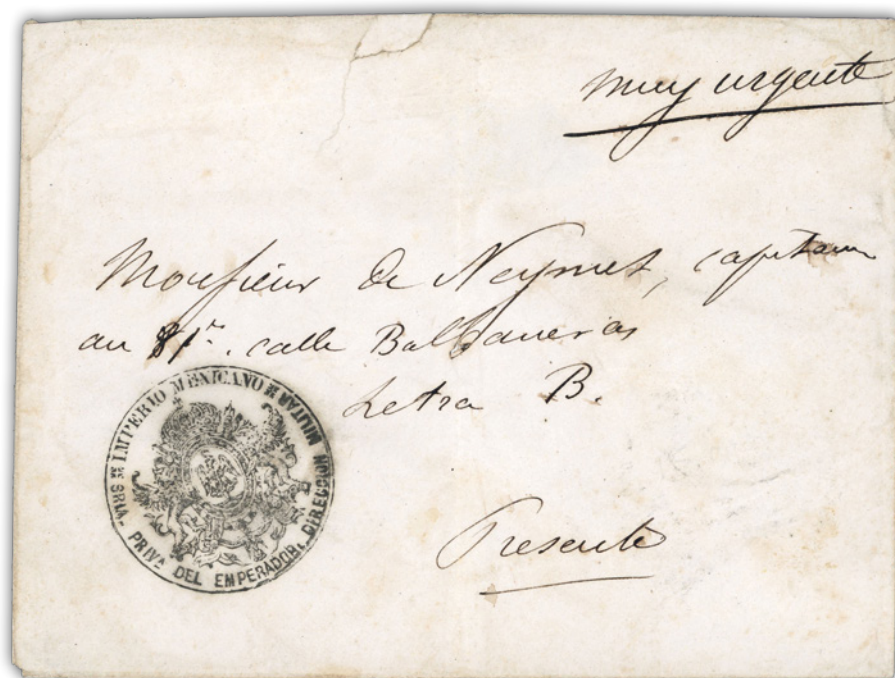 muy urgente
Monsieur de Neymet, capitaine
au 81r. calle Balbaneras
Letra B.
Presente
IMPERIO MEXICANO
SRIA. PRIVA. DEL EMPERADOR. DIRECCION MILITAR